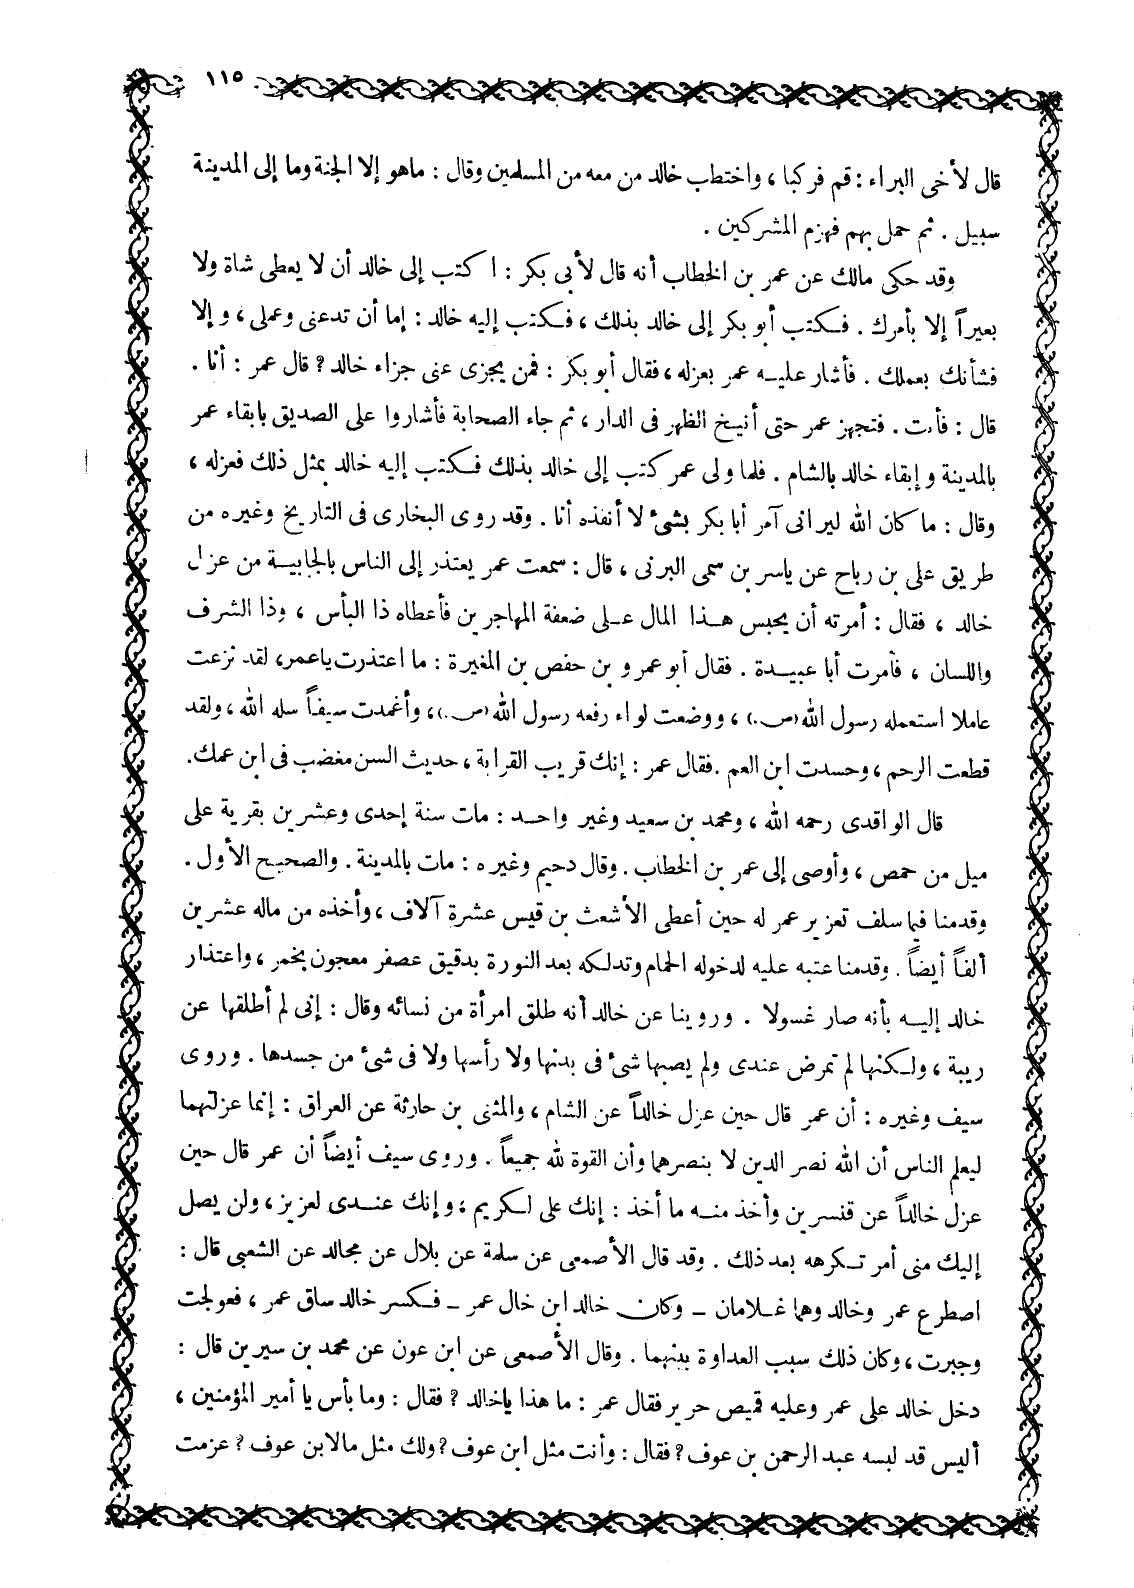 ١١٥
قال لأخى البراء : قم فركبا ، واختطب خالد من معه من المسلمين وقال : ماهو إلا الجنة وما إلى المدينة
سبيل . ثم حمل بهم فهزم المشركين .
وقد حكى مالك عن عمر بن الخطاب أنه قال لأبى بكر : اكتب إلى خالد أن لا يعطى شاة ولا
بعيراً إلا بأمرك . فكتب أبو بكر إلى خالد بذلك ، فكتب إليه خالد : إما أن تدعنى وعملى ، وإلا
فشأنك بعملك . فأشار عليه عمر بعزله ، فقال أبو بكر : فمن يجزى عنى جزاء خالد ؟ قال عمر : أنا .
قال : فأنت . فتجهز عمر حتى أنيخ الظهر فى الدار ، ثم جاء الصحابة فأشاروا على الصديق بابقاء عمر
بالمدينة وإبقاء خالد بالشام . فلما ولى عمر كتب إلى خالد بذلك فكتب إليه خالد بمثل ذلك فعزله ،
وقال : ما كان الله ليرانى آمر أبا بكر بشئ لا أنفذه أنا . وقد روى البخارى فى التاريخ وغيره من
طريق على بن رباح عن ياسر بن سمى البرنى ، قال : سمعت عمر يعتذر إلى الناس بالجابية من عزل
خالد ، فقال : أمرته أن يحبس هذا المال على ضعفة المهاجرين فأعطاه ذا البأس ، وذا الشرف
واللسان ، فأمرت أبا عبيدة . فقال أبو عمرو بن حفص بن المغيرة : ما اعتذرت ياعمر، لقد نزعت
عاملا استعمله رسول الله (ص.) ، ووضعت لواء رفعه رسول الله (ص.)، وأغمدت سيفاً سله الله ، ولقد
قطعت الرحم ، وحسدت ابن العم . فقال عمر : إنك قريب القرابة ، حديث السن مغضب فى ابن عمك.
قال الواقدى رحمه الله ، ومحمد بن سعيد وغير واحد : مات سنة إحدى وعشرين بقرية على
ميل من حمص ، وأوصى إلى عمر بن الخطاب . وقال دحيم وغيره : مات بالمدينة . والصحيح الأول .
وقدمنا فيما سلف تعزير عمر له حين أعطى الأشعث بن قيس عشرة آلاف ، وأخذه من ماله عشرين
ألفاً أيضاً . وقدمنا عتبه عليه لدخوله الحمام وتدلكه بعد النورة بدقيق عصفر معجون بخمر ، واعتذار
خالد إليه بأنه صار غسولا . وروينا عن خالد أنه طلق امرأة من نسائه وقال : إنى لم أطلقها عن
ريبة ، ولكنها لم تمرض عندى ولم يصبها شئ فى بدنها ولا رأسها ولا فى شئ من جسدها . وروى
سيف وغيره : أن عمر قال حين عزل خالداً عن الشام ، والمثنى بن حارثة عن العراق : إنما عزلتهما
ليعلم الناس أن الله نصر الدين لا بنصرهما وأن القوة لله جميعاً . وروى سيف أيضاً أن عمر قال حين
عزل خالداً عن قنسرين وأخذ منه ما أخذ : إنك على لكريم ، وإنك عندى لعزيز ، ولن يصل
إليك منى أمر تكرهه بعد ذلك . وقد قال الأصمعى عن سلمة عن بلال عن مجالد عن الشعبى قال :
اصطرع عمر وخالد وهما غلامان - وكان خالد ابن خال عمر - فكسر خالد ساق عمر ، فعولجت
وجبرت ، وكان ذلك سبب العداوة بينهما . وقال الأصمعى عن ابن عون عن محمد بن سيرين قال :
دخل خالد على عمر وعليه قميص حرير فقال عمر : ما هذا ياخالد ؟ فقال : وما بأس يا أمير المؤمنين ،
أليس قد لبسه عبد الرحمن بن عوف ؟ فقال : وأنت مثل ابن عوف ؟ ولك مثل مالابن عوف ؟ عزمت